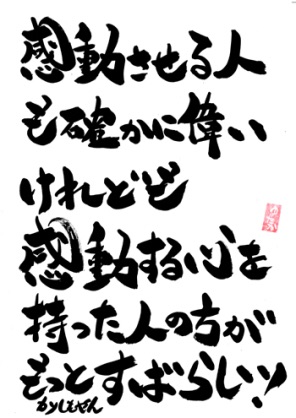 感動させる人
も確かに偉い
けれども
感動する心を
持った人の方が
もっとすばらしい!